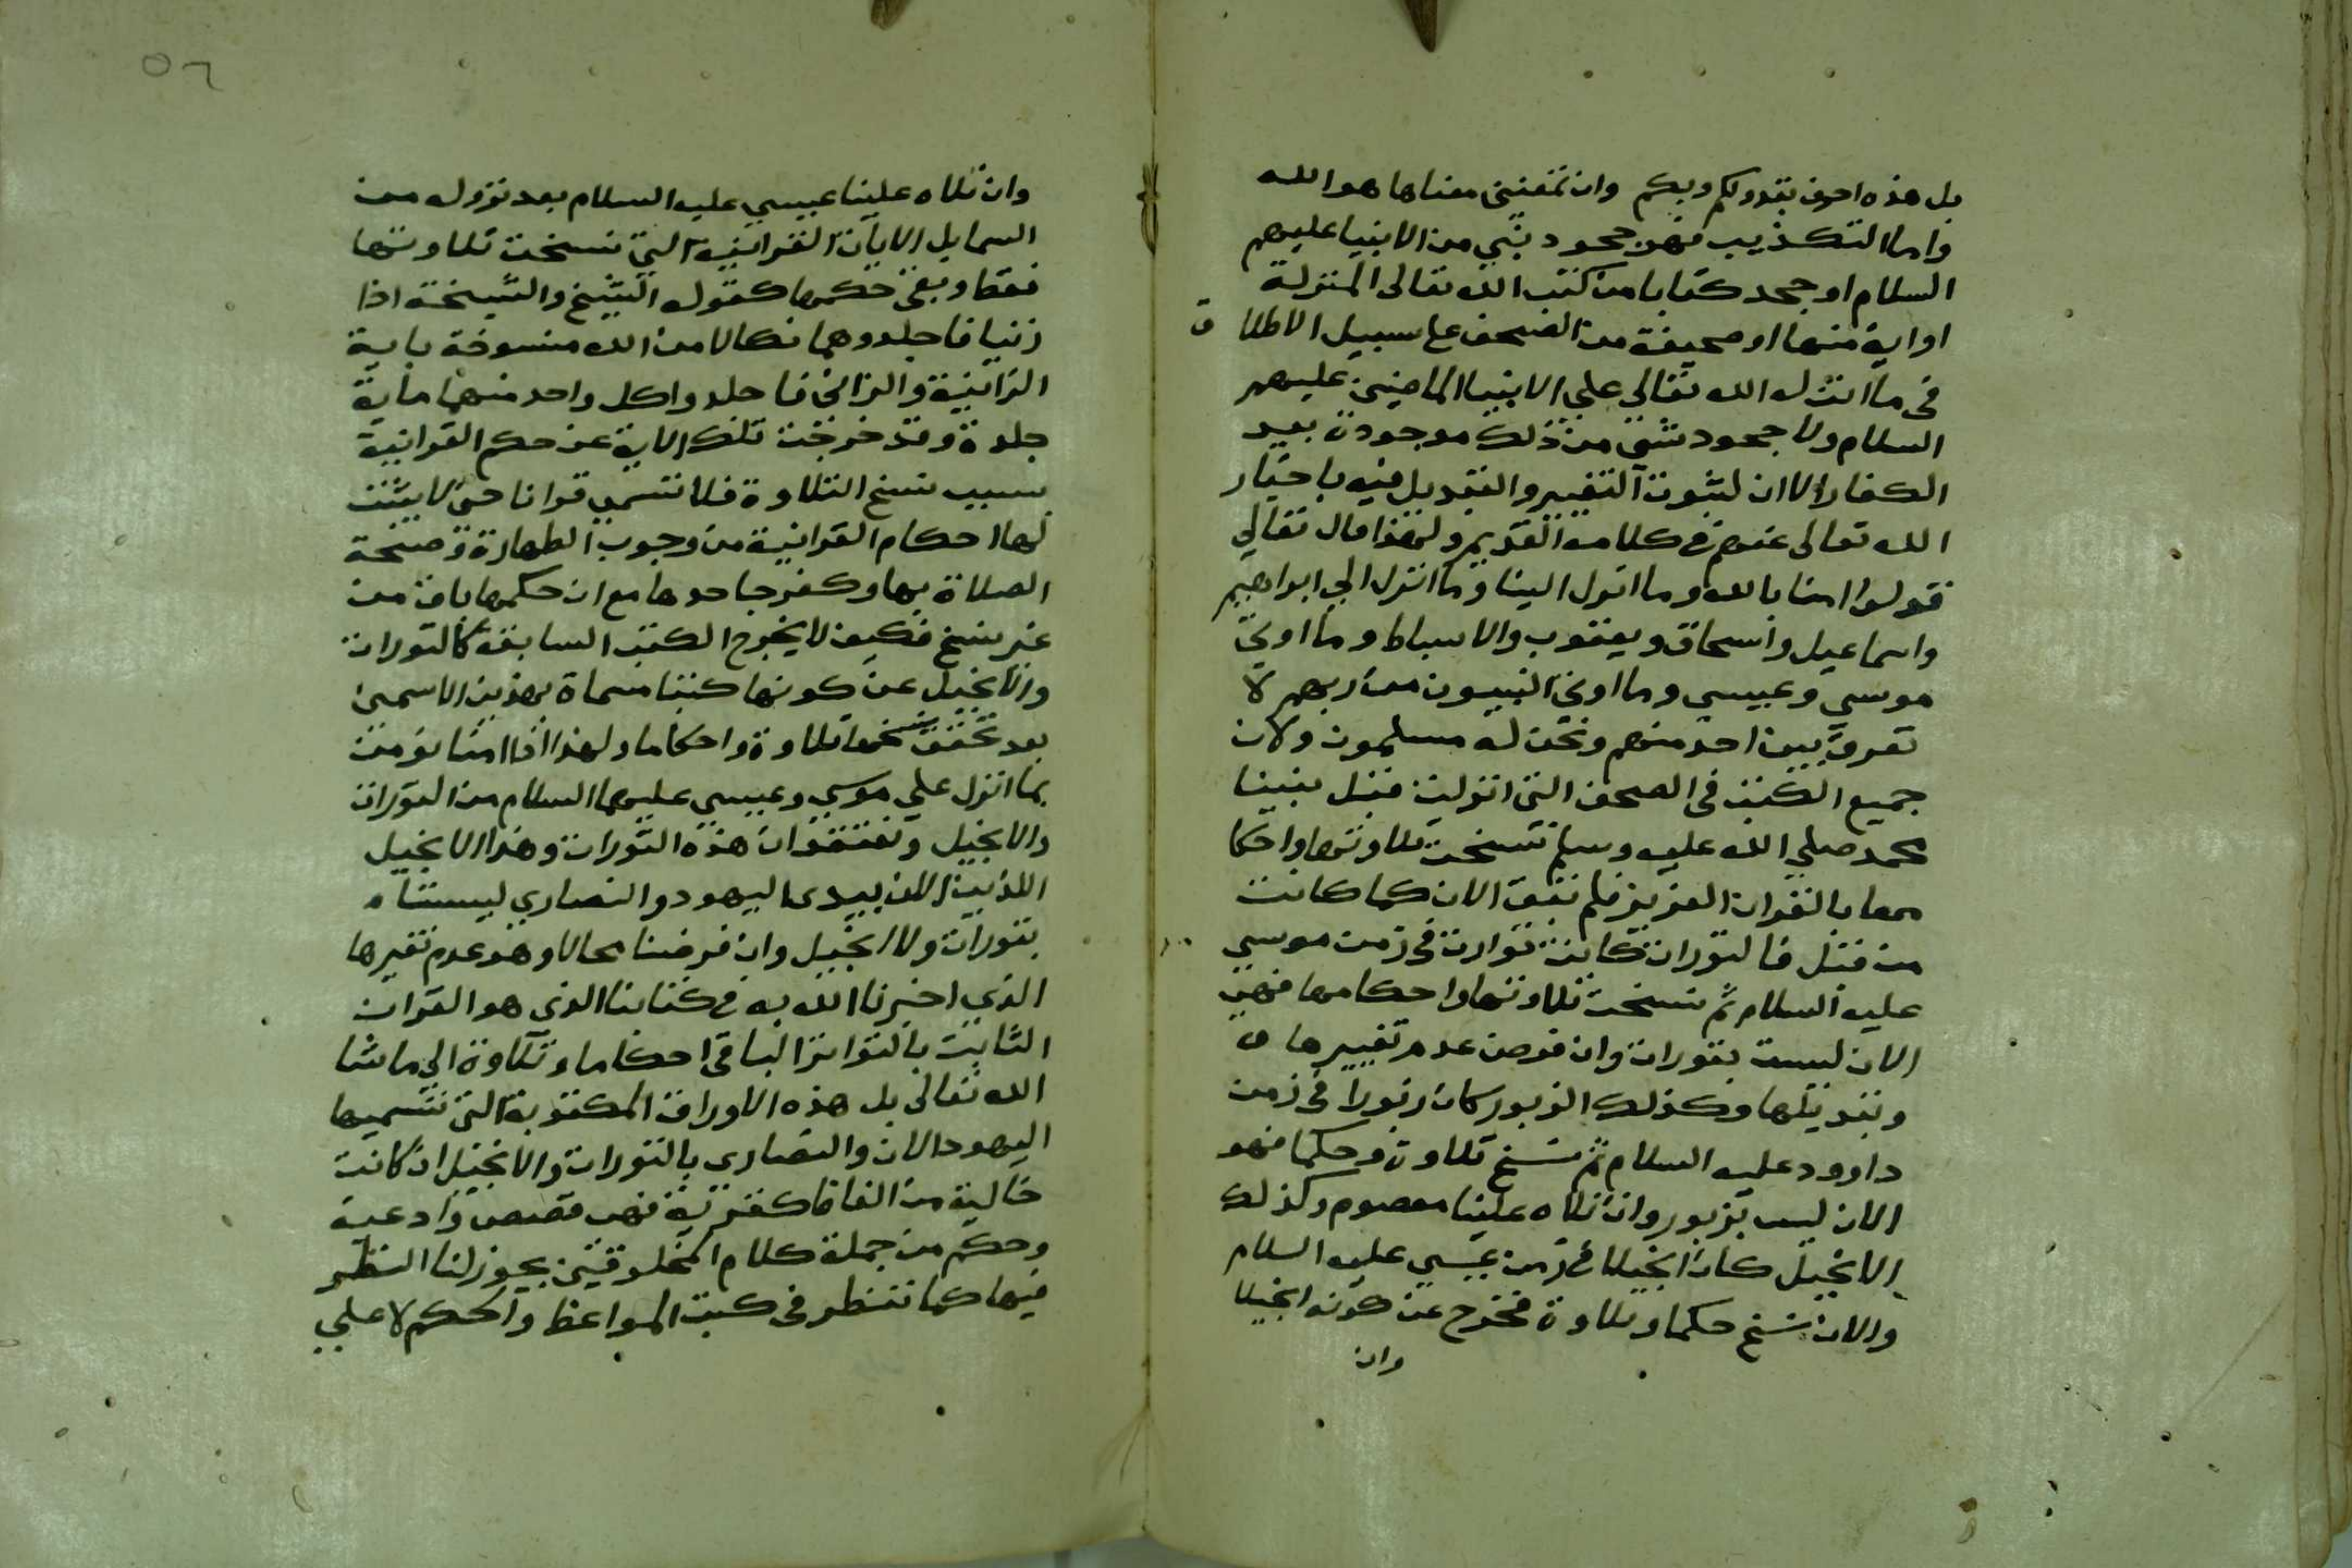 بل هذه احرف تقدو لكم وبكم وان تمغنني معناها هو الله
واما التكذيب فهو جحود بنبي من الانبيا عليهم
السلام او جحد كتابا من كتب الله تعالى المنزلة
او اية منها او صحيفة من الصحف على سبيل الاطلاق
في ما انزل الله تعالي علي الانبيا الماضين عليهم
السلام ولا جحود شي من ذلك موجودة بيد
الكفار الا ان لثبوت التغيير والتبديل فيه باخبار
الله تعالى عنهم في كلامه القديم ولهذا قال تعالي
قولوا امنا بالله وما انزل الينا وما انزل الي ابراهيم
واسماعيل واسحاق ويعقوب والاسباط وما اوتي
موسي وعيسي وما اوتي النبيون من ربهم لا
نفرق بين احد منهم ونحن له مسلمون ولان
جميع الكتب في الصحف التي انزلت قبل نبينا
محمد صلي الله عليه وسلم نسخت تلاوتها واحكا
مها بالقران العزيز فلم تبق الان كما كانت
من قبل فالتورات كانت توارت في زمن موسي
عليه السلام ثم نسخت تلاوتها واحكامها فهي
الان ليست بتورات وان فرض عدم تغييرها
وتبديلها وكذلك الزبور كان زبورا في زمن
داوود عليه السلام ثم نسخ تلاوة وحكما فهو
الان ليس بزبور وان تلاه علينا معصوم وكذلك
الانجيل كان انجيلا في زمن عيسي عليه السلام
والان نسخ حكما وتلاوة فخرج عن كونه انجيلا
وان
٥٦
وان تلاه علينا عيسي عليه السلام بعد نزوله من
السما بل الايات القرانية التي نسخت تلاوتها
فقط وبقي حكمها كقوله الشيخ والشيخة اذا
زنيا فاجلدوهما نكالا من الله منسوخة باية
الزانية والزاني فاجلدوا كل واحد منهما ماية
جلدة وقد خرجت تلك الاية عن حكم القرانية
بسبب نسخ التلاوة فلا تسمي قرانا حتى لا يثبت
لها احكام القرانية من وجوب الطهارة وصحة
الصلاة بها وكفر جاحدها مع ان حكمها باق من
غير نسخ فكيف لا يخرج الكتب السابقة كالتورات
والانجيل عن كونها كتبا مسماة بهذين الاسمين
بعد تحقق نسخها تلاوة واحكاما ولهذا انا امنا نومن
بما انزل علي موسي وعيسي عليهما السلام من التورات
والانجيل ونعتقد ان هذه التورات وهذا الانجيل
اللذين الان بيدي اليهود والنصاري ليستا
بتورات ولا انجيل وان فرضنا محالا وهو عدم تغيرها
الذي اخبرنا الله به في كتابنا الذي هو القران
الثابت بالتواتر الباقي احكاما وتلاوة الي ماشا
الله تعالى بل هذه الاوراق المكتوبة التي تسميها
اليهود الان والنصاري بالتورات والانجيل ان كانت
خالية من الفاظ كفرية فهي قصص وادعية
وحكم من جملة كلام المخلوقين يجوز لنا النظر
فيها كما ننظر في كتب المواعظ والحكم لا علي